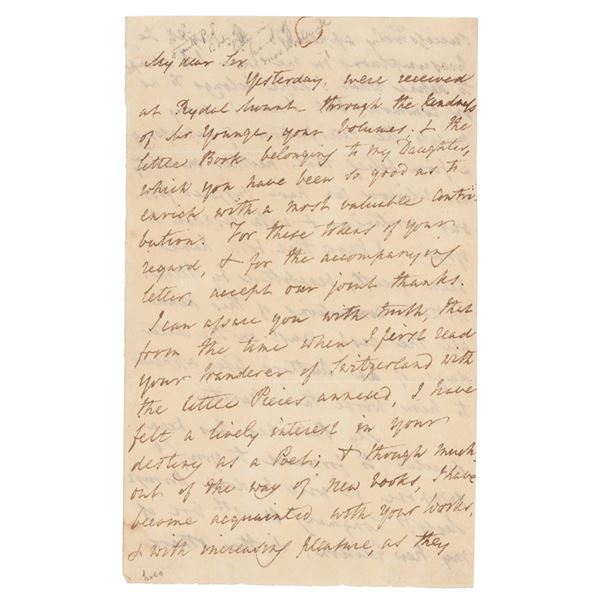 My dear Sir
Yesterday, were received
at Rydal Mount - through the kindness
of Mr Younge, your Volumes, & the
little Book belonging to my Daughter,
which you have been so good as to
enrich with a most valuable contri-
bution. For these tokens of your
regard, & for the accompanying
letter, accept our joint thanks.
I can assure you with truth, that
from the time when I first read
your Wanderer of Switzerland with
the little Pieces annexed, I have
felt a lively interest in your
destiny as a Poet; & though much
out of the way of new books, I have
become acquainted with your Works,
& with increasing pleasure, as they